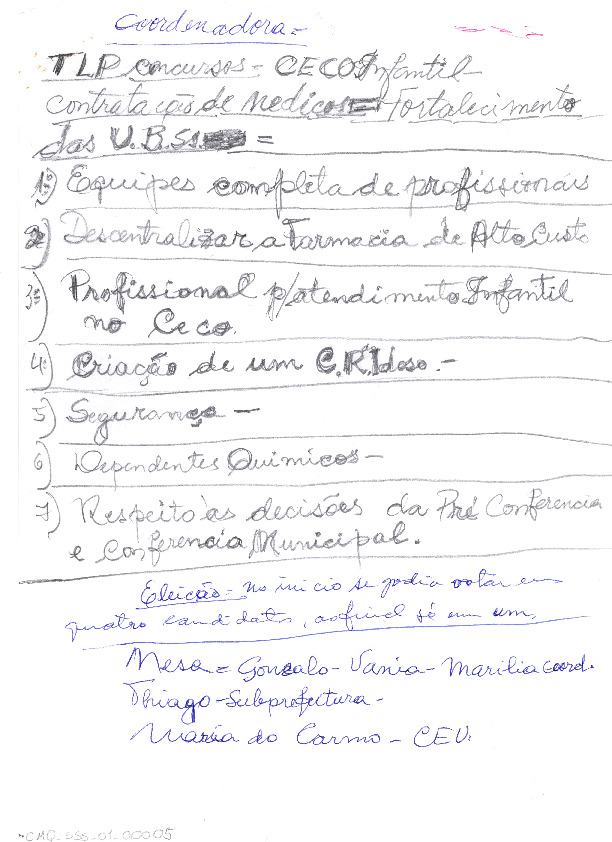 Coordenadora =
TLP concursos - CECO Infantil -
contratação de medicos = Fortalecimento
das U.B.Ss. =
1º) Equipes completa de profissionais
2) Descentralizar a Farmacia de Alto Custo
3º) Profissional p/atendimento Infantil
no Ceco.
4º) Criação de um C.R.Idoso. -
5) Segurança -
6) Dependentes Quimicos -
7) Respeito às decisões da Pré Conferencia
e Conferencia Municipal.
Eleição - no inicio se podia votar em
quatro candidatos, ao final só em um.
Mesa = Gonzalo - Vania - Marilia coord.
Thiago - Subprefeitura -
Maria do Carmo - CEU.
CMQ_SSS_01_00005